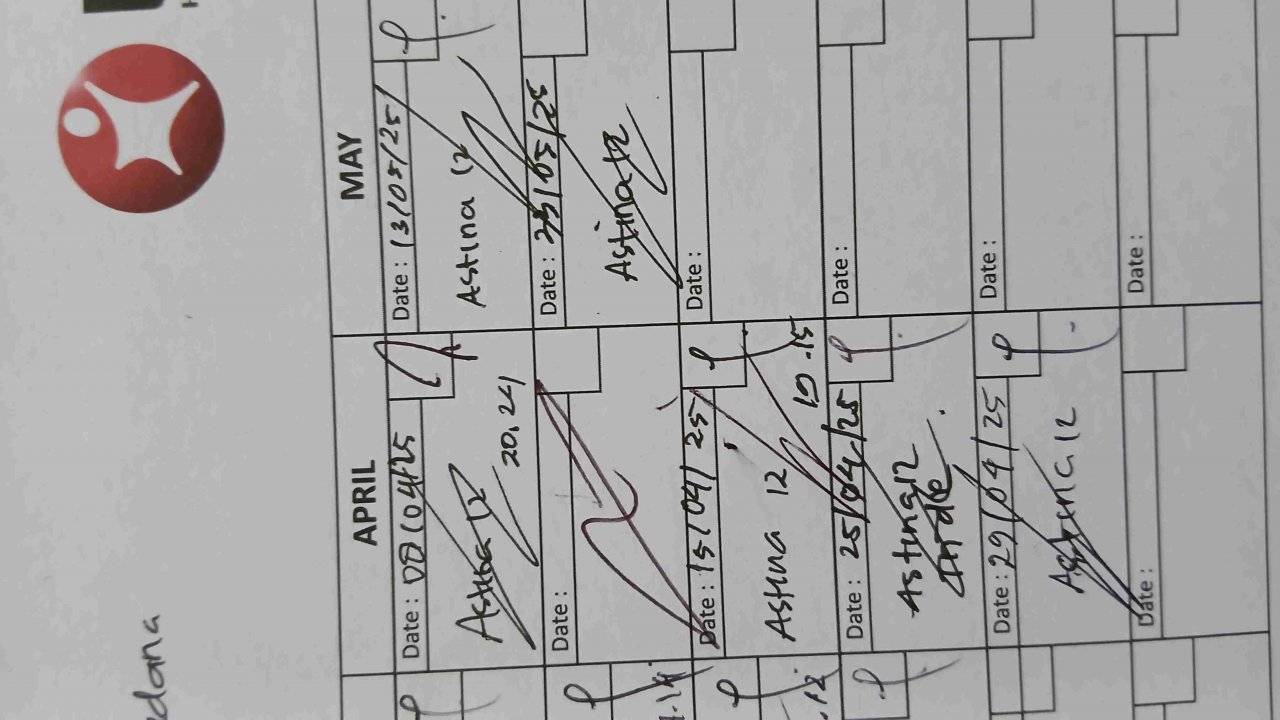 edana
APRIL
MAY
Date : 08/04/25
Astina 12
20.24
Date : 13/05/25
Astina 12
Date :
Date : 23/05/25
Astina 12
Date : 15/04/25
Astina 12
19.15
Date :
Date : 25/04/25
Astina 12
Date :
Date : 29/04/25
Astina 12
Date :
Date :
Date :